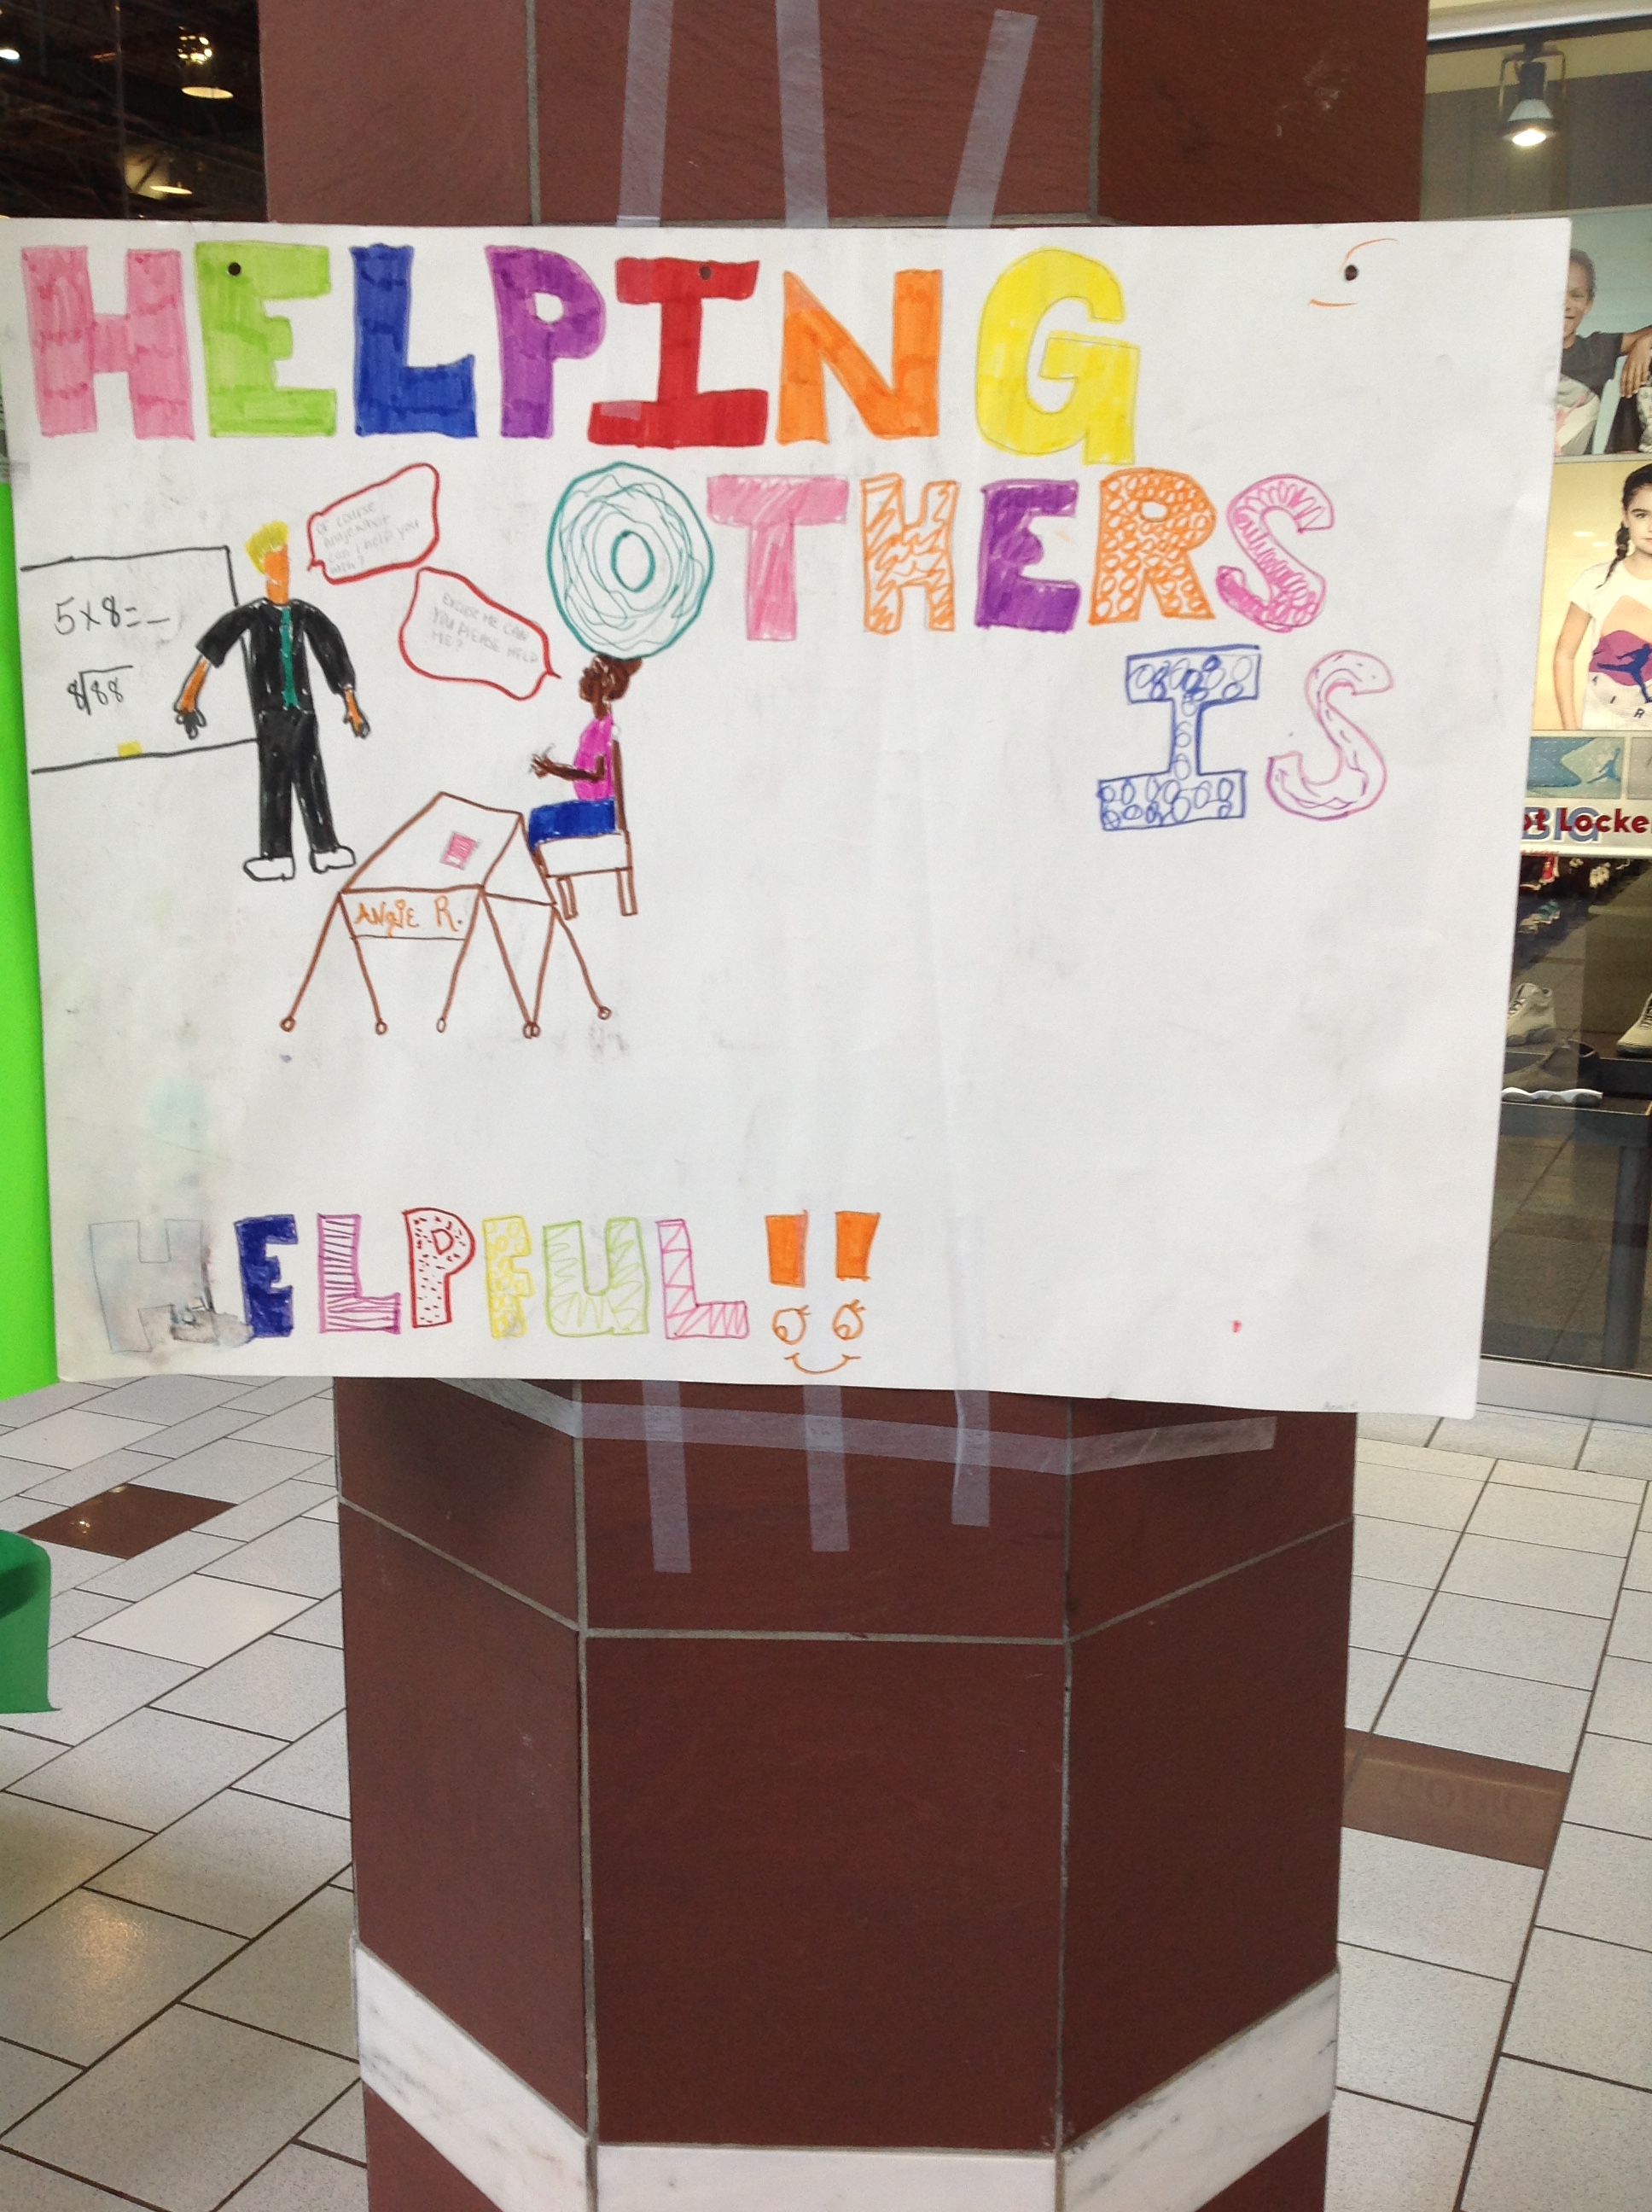 HELPING
OTHERS
IS
OF COURSE
Angie what
can I help you
with?
EXCUSE ME CAN
YOU PLEASE HELP
ME?
5x8=_
8√88
ANgiE R.
HELPFUL!!
ot Locke
BIG
AIR